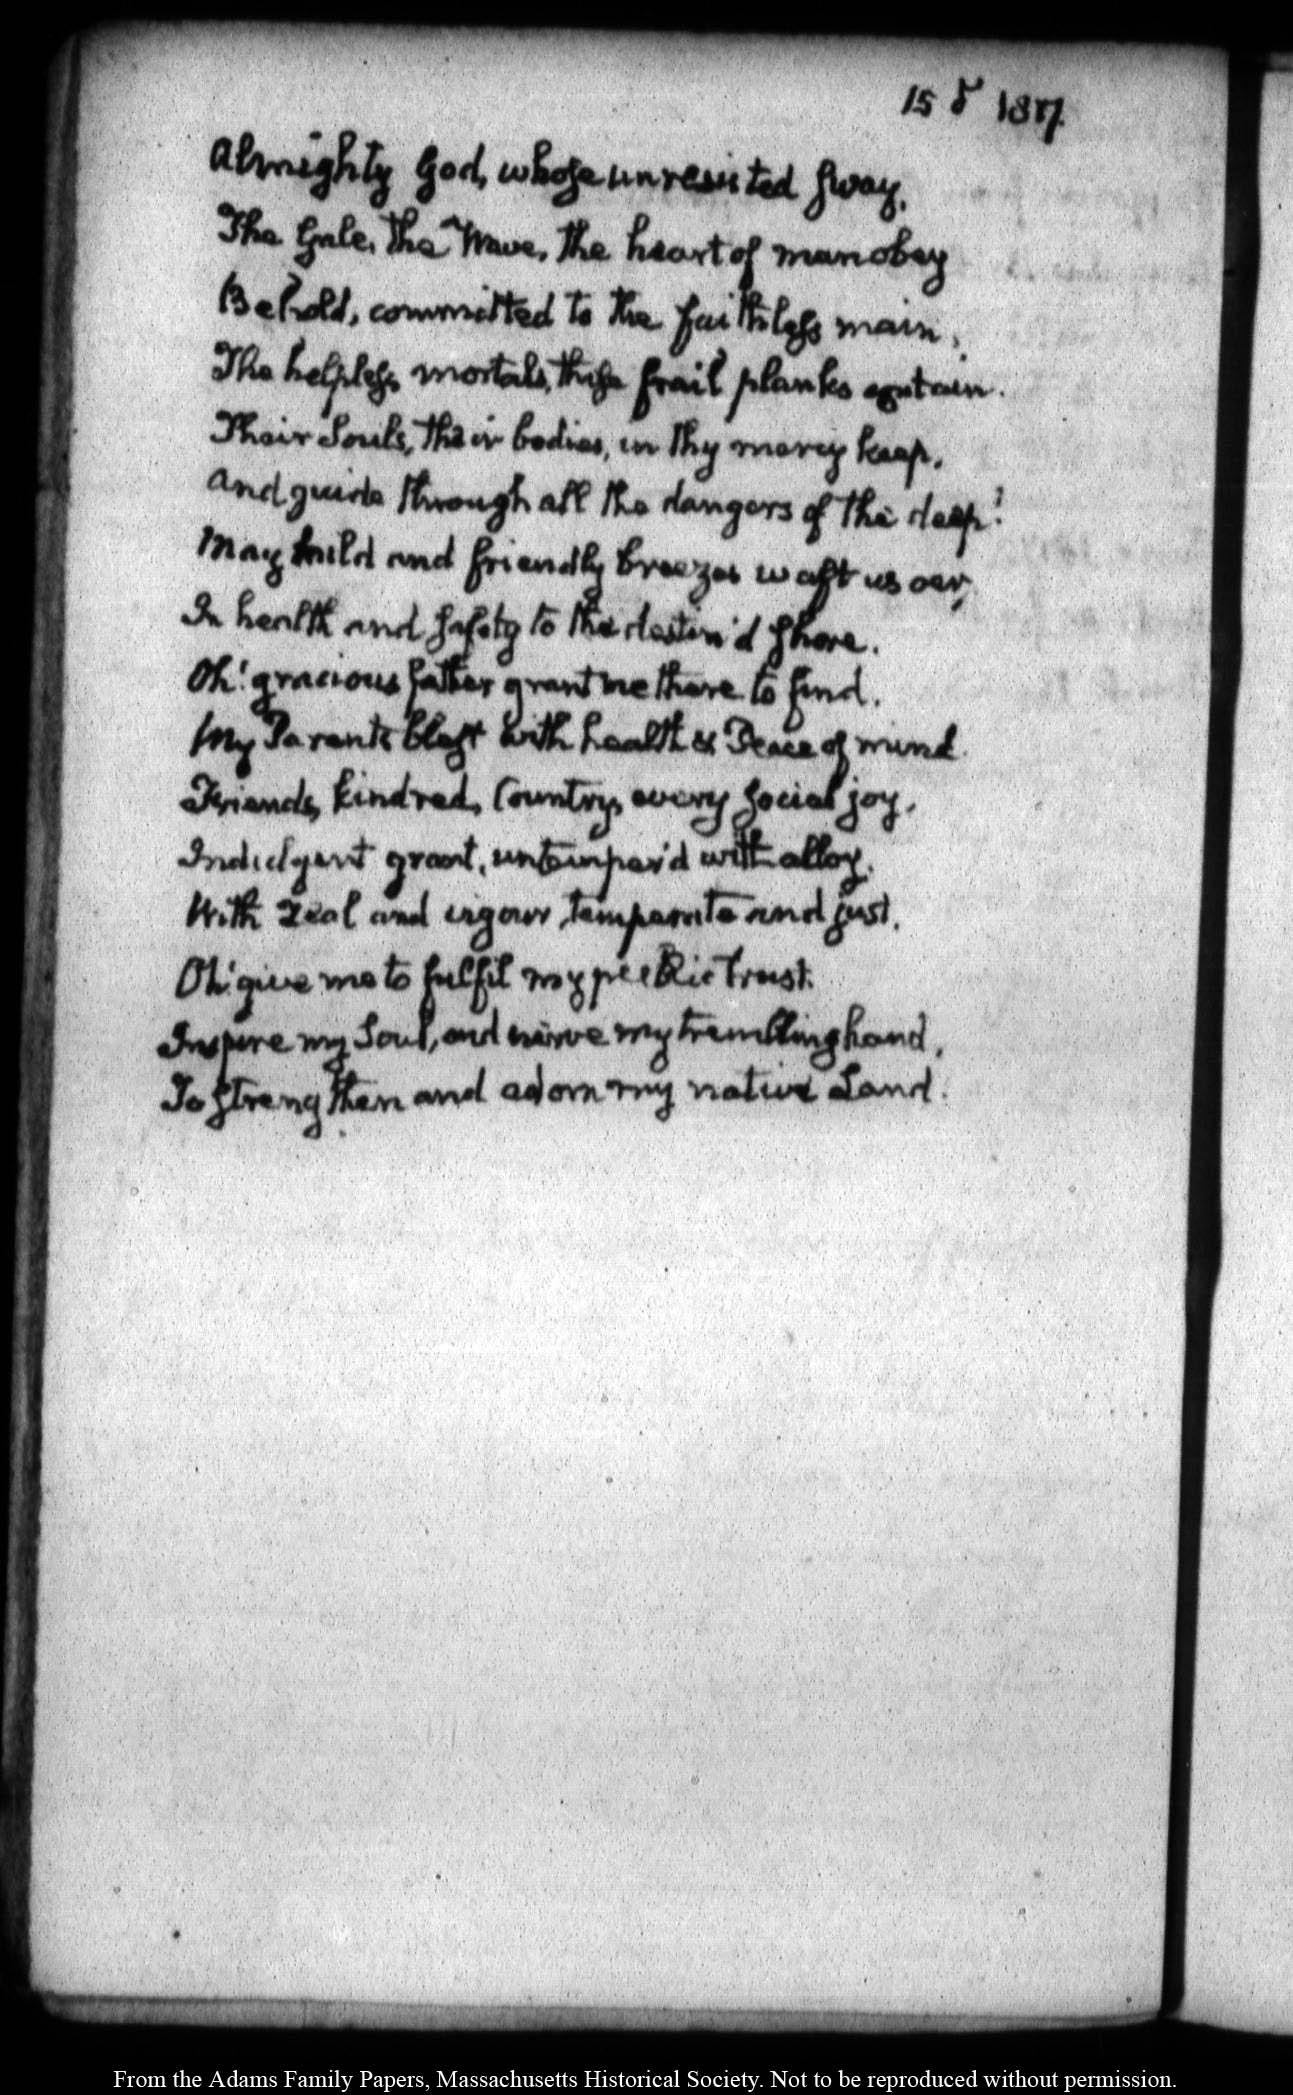 15 1817.
Almighty God, whose unresisted sway,
The Gale, the Wave, the heart of man obey
Behold, committed to the faithless main,
The helpless mortals, these frail planks contain.
Their Souls, their bodies, in thy mercy keep,
And guide through all the dangers of the deep!
May mild and friendly breezes waft us oer,
In health and safety to the destin'd shore.
Oh! gracious father grant me there to find,
My Parents blest with health & Peace of mind.
Friends, kindred, Country, every social joy,
Indulgent grant, untemper'd with alloy.
With zeal and vigour, temperate and just,
Oh! give me to fulfil my public trust.
Inspire my Soul, and nerve my trembling hand,
To strengthen and adorn my native Land.
From the Adams Family Papers, Massachusetts Historical Society. Not to be reproduced without permission.